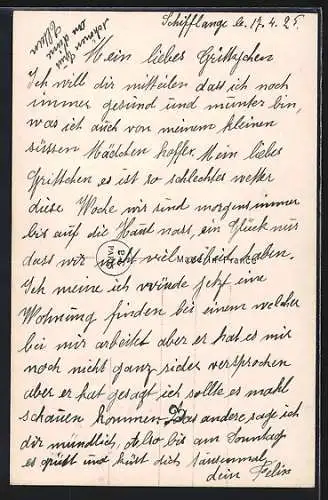 Schifflange le. 17.4.25.
schönen Gruß
an deine
Eltern
Mein liebes Grittchen
Ich will dir mitteilen dass ich noch
immer gesund und munter bin,
was ich auch von meinem kleinen
süssen Mädchen hoffe. Mein liebes
Grittchen es ist so schlechtes wetter
diese Woche wir sind morgens immer
bis auf die Haut nass, ein Glück nur
dass wir nicht viel weit haben.
PARIS
Made in France
Ich meine ich würde jetz eine
Wohnung finden bei einem welcher
bei mir arbeitet aber er hat es mir
noch nicht ganz sicher versprochen
aber er hat gesagt ich sollte es mahl
schauen kommen Das andere sage ich
dir mündlich. Also bis am Sonntag
es grüst und küst dich tausenmal
dein Felix